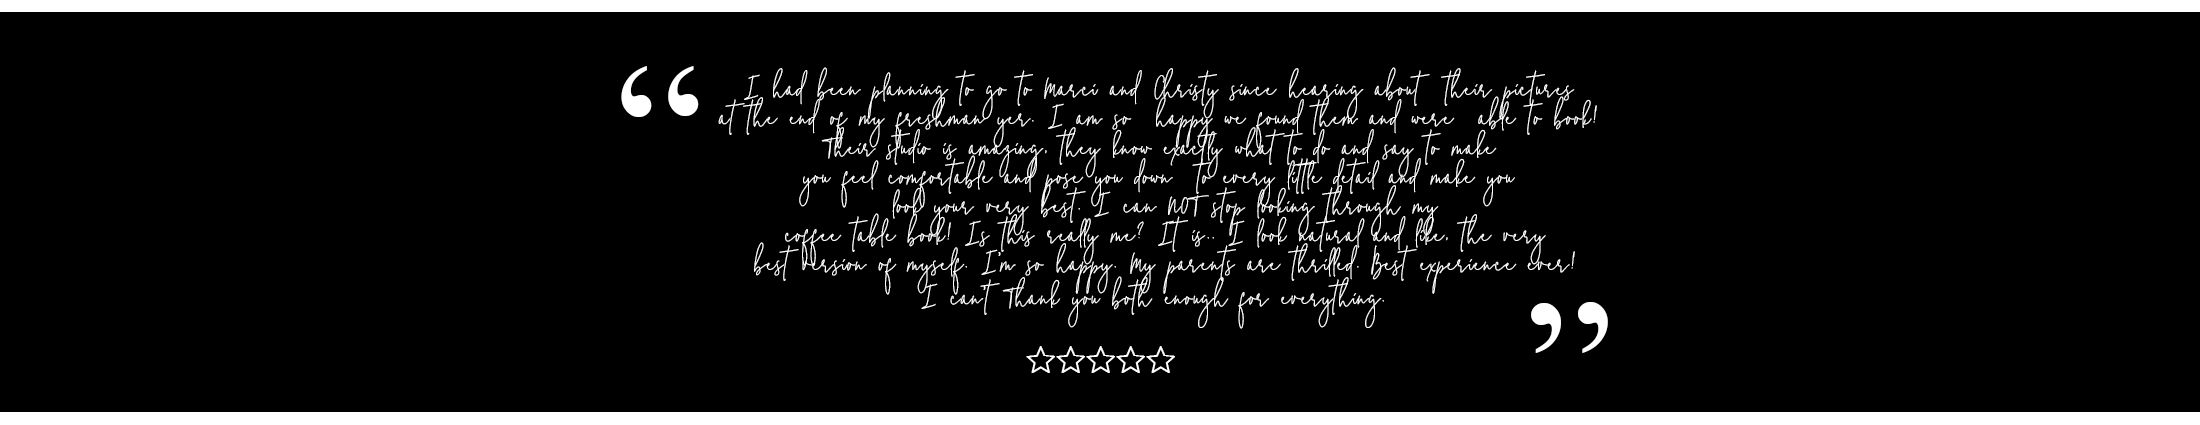 “ I had been planning to go to Marci and Christy since hearing about their pictures
at the end of my freshman yer. I am so happy we found them and were able to book!
Their studio is amazing, they know exactly what to do and say to make
you feel comfortable and pose you down to every little detail and make you
look your very best. I can NOT stop looking through my
coffee table book! Is this really me? It is.. I look natural and like, the very
best version of myself. I'm so happy. My parents are thrilled. Best experience ever!
I can't thank you both enough for everything. ”